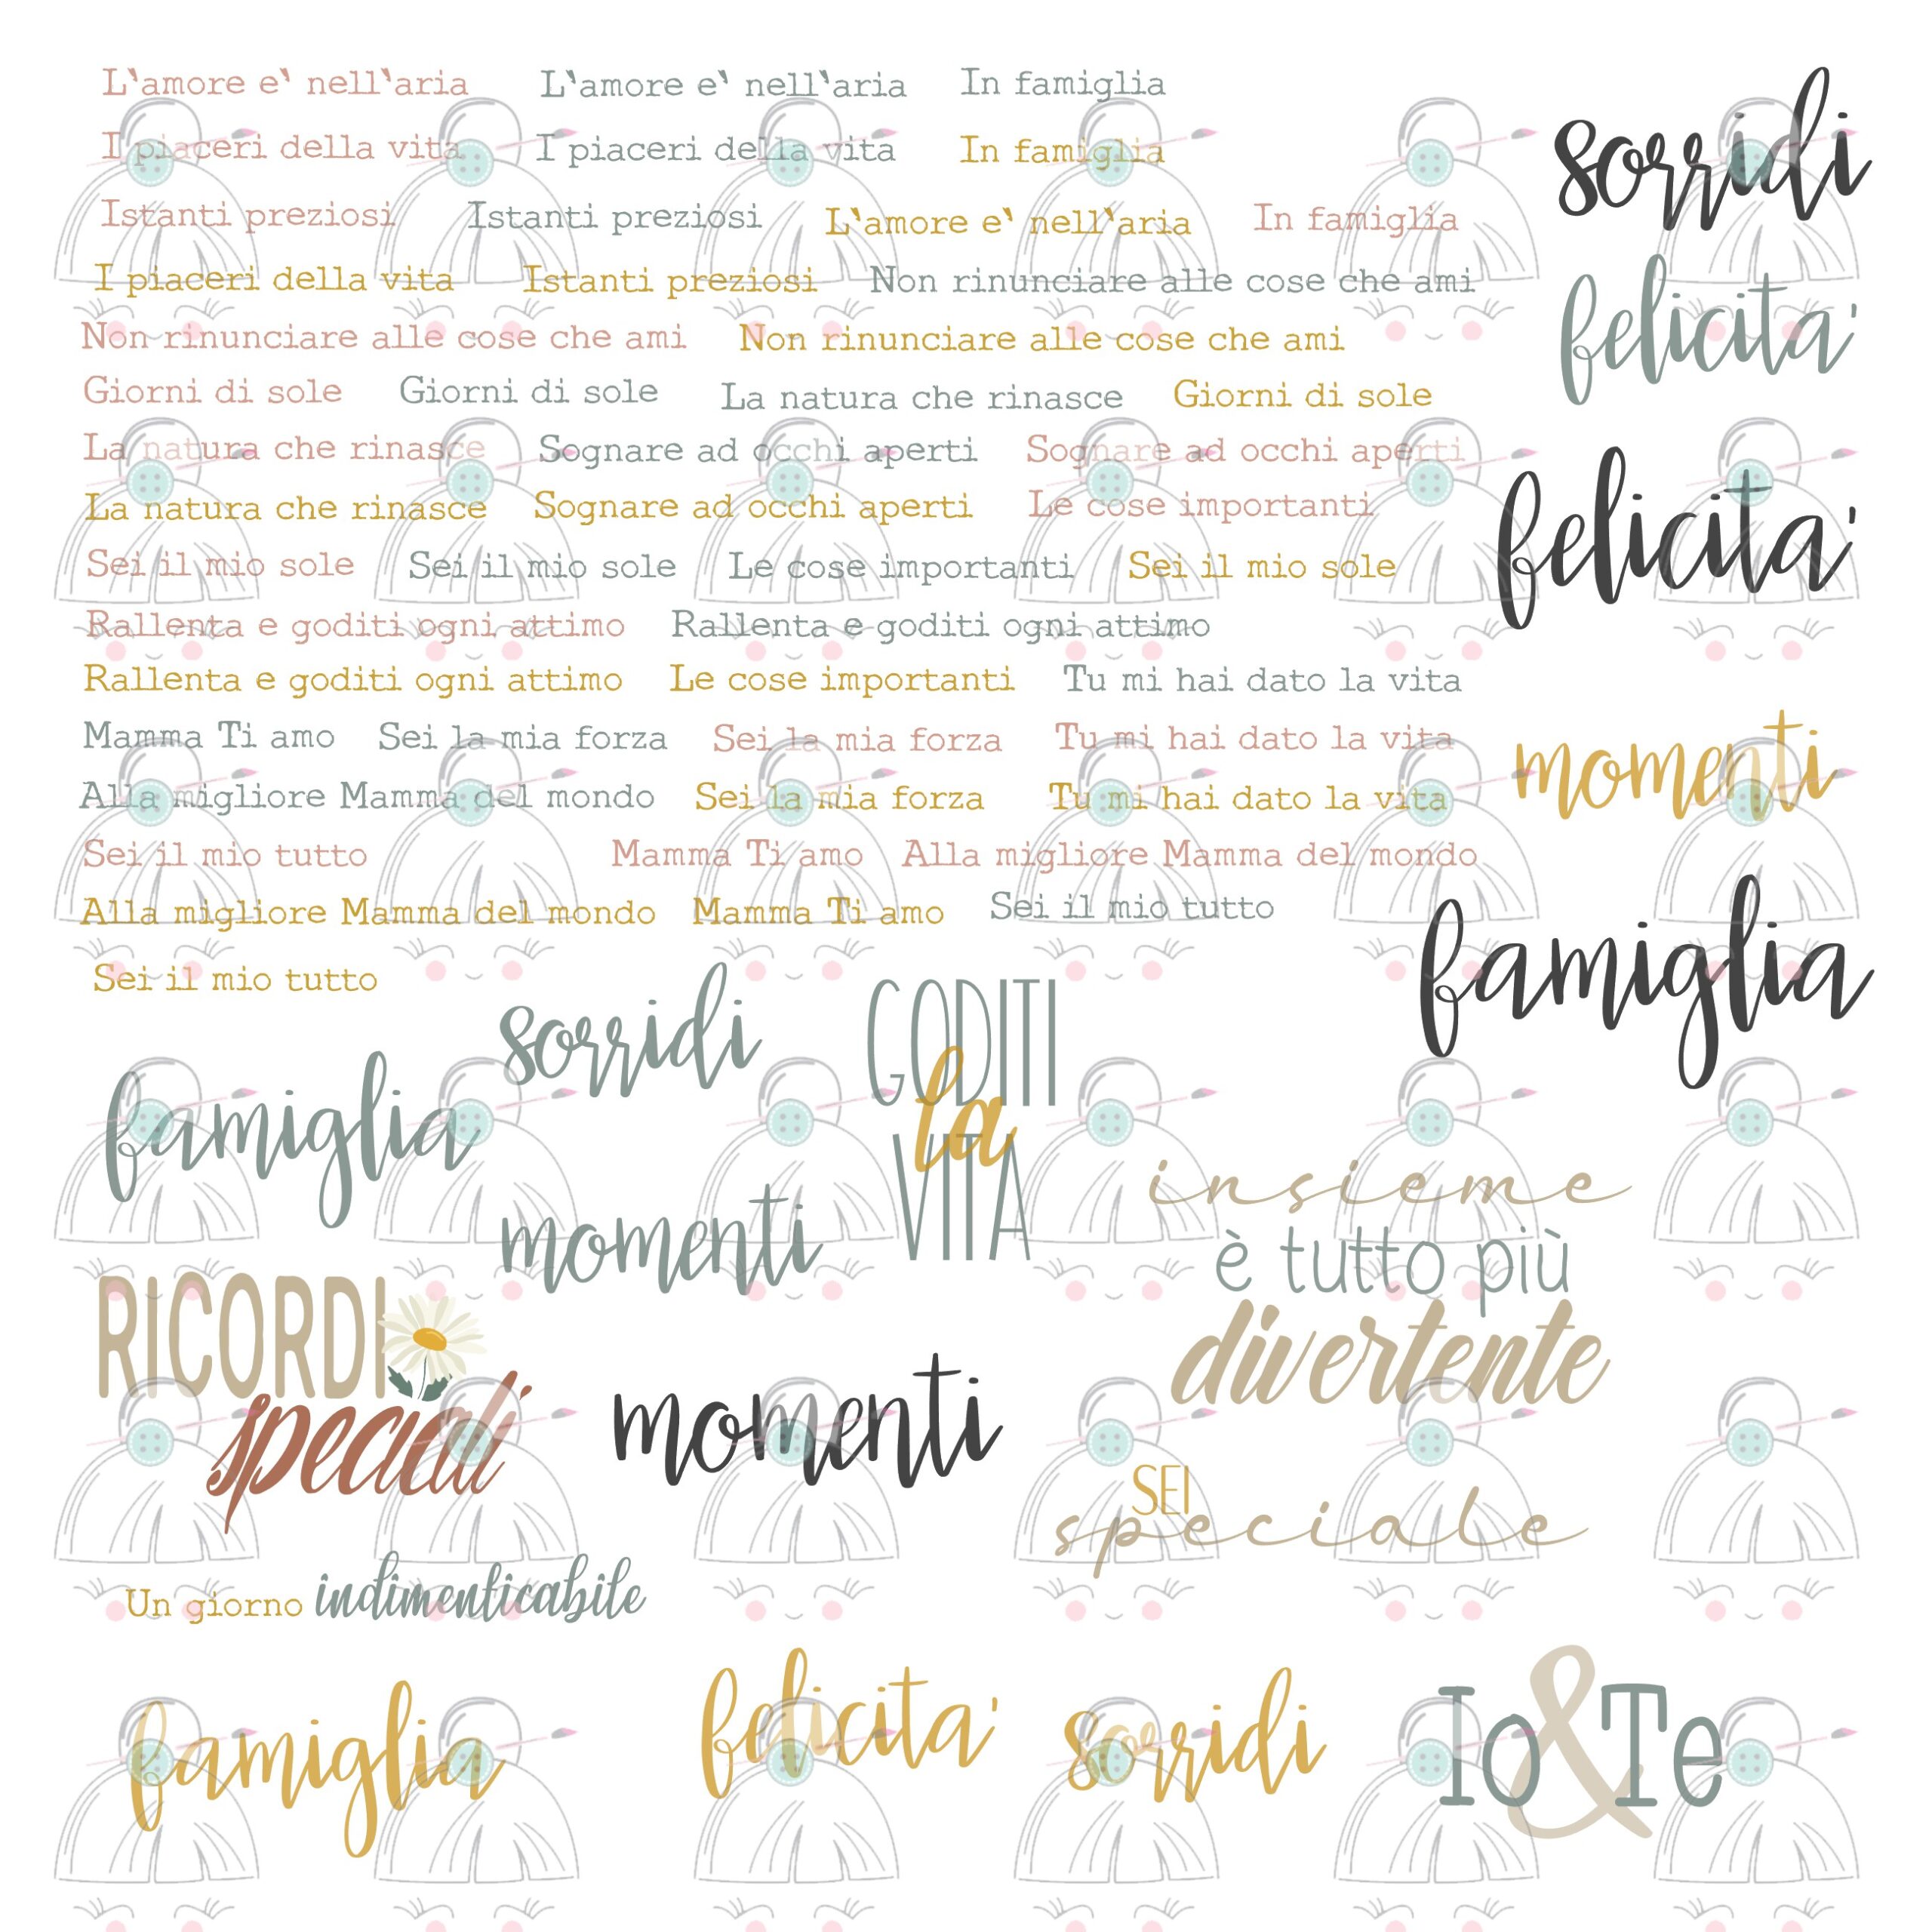 L'amore e' nell'aria L'amore e' nell'aria In famiglia
I piaceri della vita I piaceri della vita In famiglia
Istanti preziosi Istanti preziosi L'amore e' nell'aria In famiglia
I piaceri della vita Istanti preziosi Non rinunciare alle cose che ami
Non rinunciare alle cose che ami Non rinunciare alle cose che ami
Giorni di sole Giorni di sole La natura che rinasce Giorni di sole
La natura che rinasce Sognare ad occhi aperti Sognare ad occhi aperti
La natura che rinasce Sognare ad occhi aperti Le cose importanti
Sei il mio sole Sei il mio sole Le cose importanti Sei il mio sole
Rallenta e goditi ogni attimo Rallenta e goditi ogni attimo
Rallenta e goditi ogni attimo Le cose importanti Tu mi hai dato la vita
Mamma Ti amo Sei la mia forza Sei la mia forza Tu mi hai dato la vita
Alla migliore Mamma del mondo Sei la mia forza Tu mi hai dato la vita
Sei il mio tutto Mamma Ti amo Alla migliore Mamma del mondo
Alla migliore Mamma del mondo Mamma Ti amo Sei il mio tutto
Sei il mio tutto
sorridi
felicita'
felicita'
momenti
famiglia
sorridi
famiglia
momenti
GODITI
la
VITA
insieme
è tutto più
divertente
RICORDI
speciali
momenti
SEI
speciale
Un giorno indimenticabile
famiglia
felicita'
sorridi
Io & Te